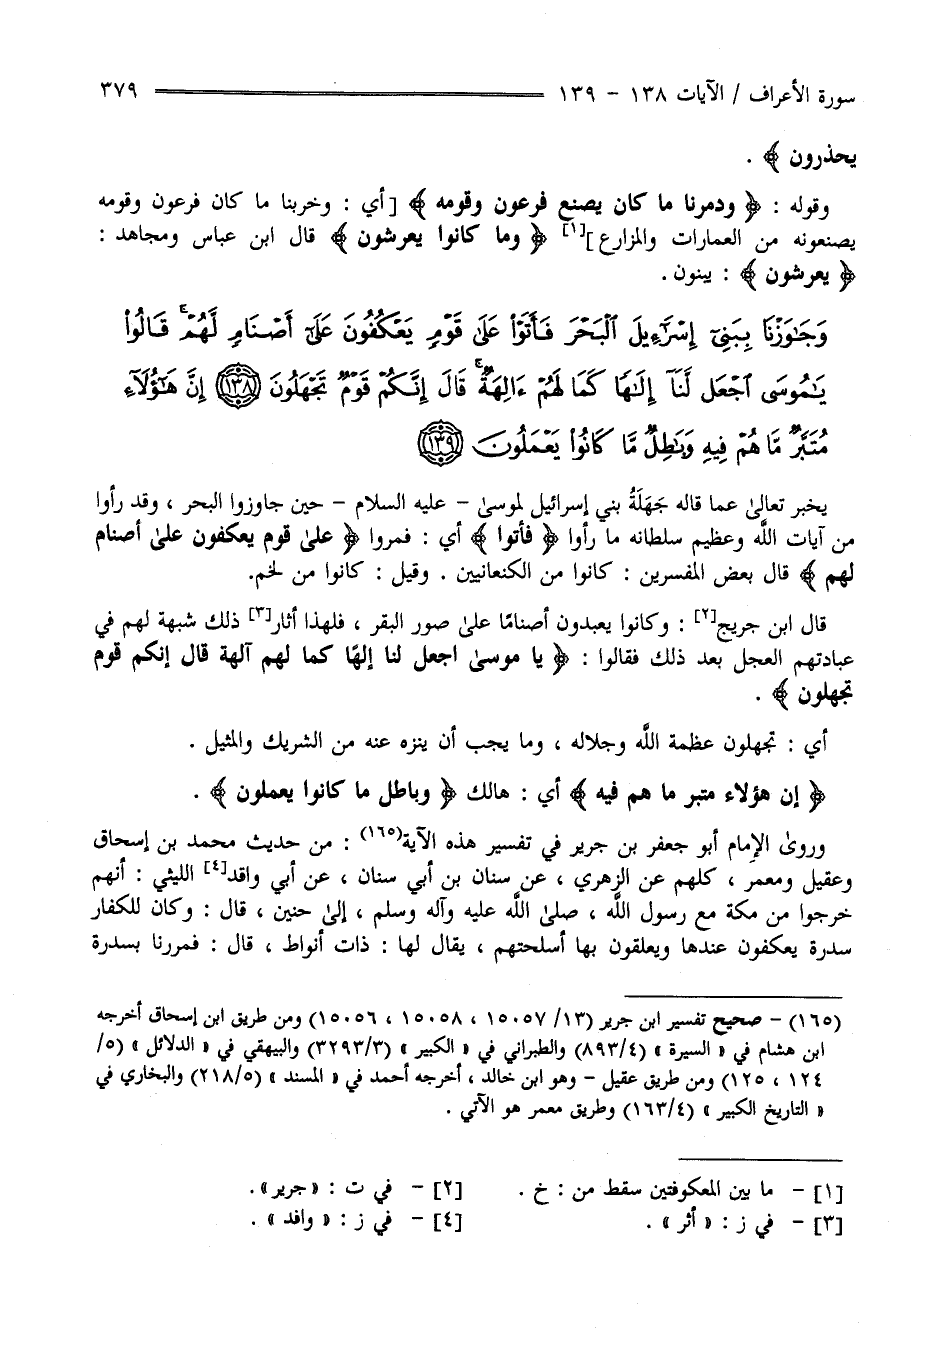 سورة الأعراف / الآيات ١٣٨ - ١٣٩ ٣٧٩
يحذرون ﴾ .
وقوله : ﴿ ودمرنا ما كان يصنع فرعون وقومه ﴾ [ أي : وخربنا ما كان فرعون وقومه
يصنعونه من العمارات والمزارع ][١] ﴿ وما كانوا يعرشون ﴾ قال ابن عباس ومجاهد :
﴿ يعرشون ﴾ : يبنون .
وَجَٰوَزْنَا بِبَنِىٓ إِسْرَٰٓءِيلَ ٱلْبَحْرَ فَأَتَوْا۟ عَلَىٰ قَوْمٍ يَعْكُفُونَ عَلَىٰٓ أَصْنَامٍ لَّهُمْ ۚ قَالُوا۟
يَٰمُوسَى ٱجْعَل لَّنَآ إِلَٰهًا كَمَا لَهُمْ ءَالِهَةٌ ۚ قَالَ إِنَّكُمْ قَوْمٌ تَجْهَلُونَ ١٣٨ إِنَّ هَٰٓؤُلَآءِ
مُتَبَّرٌ مَّا هُمْ فِيهِ وَبَٰطِلٌ مَّا كَانُوا۟ يَعْمَلُونَ ١٣٩
يخبر تعالىٰ عما قاله جَهَلَةُ بني إسرائيل لموسىٰ - عليه السلام - حين جاوزوا البحر ، وقد رأوا
من آيات اللَّه وعظيم سلطانه ما رأوا ﴿ فأتوا ﴾ أي : فمروا ﴿ علىٰ قوم يعكفون علىٰ أصنام
لهم ﴾ قال بعض المفسرين : كانوا من الكنعانيين . وقيل : كانوا من لخم.
قال ابن جريج[٢] : وكانوا يعبدون أصنامًا علىٰ صور البقر ، فلهذا أثار[٣] ذلك شبهة لهم في
عبادتهم العجل بعد ذلك فقالوا : ﴿ يا موسىٰ اجعل لنا إلهًا كما لهم آلهة قال إنكم قوم
تجهلون ﴾ .
أي : تجهلون عظمة اللَّه وجلاله ، وما يجب أن ينزه عنه من الشريك والمثيل .
﴿ إن هؤلاء متبر ما هم فيه ﴾ أي : هالك ﴿ وباطل ما كانوا يعملون ﴾ .
وروىٰ الإمام أبو جعفر بن جرير في تفسير هذه الآية(١٦٥) : من حديث محمد بن إسحاق
وعقيل ومعمر ، كلهم عن الزهري ، عن سنان بن أبي سنان ، عن أبي واقد[٤] الليثي : أنهم
خرجوا من مكة مع رسول اللَّه ، صلىٰ اللَّه عليه وآله وسلم ، إلىٰ حنين ، قال : وكان للكفار
سدرة يعكفون عندها ويعلقون بها أسلحتهم ، يقال لها : ذات أنواط ، قال : فمررنا بسدرة
(١٦٥) - صحيح تفسير ابن جرير (١٣/ ١٥٠٥٧ ، ١٥٠٥٨ ، ١٥٠٥٦) ومن طريق ابن إسحاق أخرجه
ابن هشام في « السيرة » (٨٩٣/٤) والطبراني في « الكبير » (٣٢٩٣/٣) والبيهقي في « الدلائل » (٥/
١٢٤ ، ١٢٥) ومن طريق عقيل - وهو ابن خالد ، أخرجه أحمد في « المسند » (٢١٨/٥) والبخاري في
« التاريخ الكبير » (١٦٣/٤) وطريق معمر هو الآتي .
[١] - ما بين المعكوفتين سقط من : خ . [٢] - في ت : «جرير».
[٣] - في ز : « أثر » . [٤] - في ز : « وافد » .